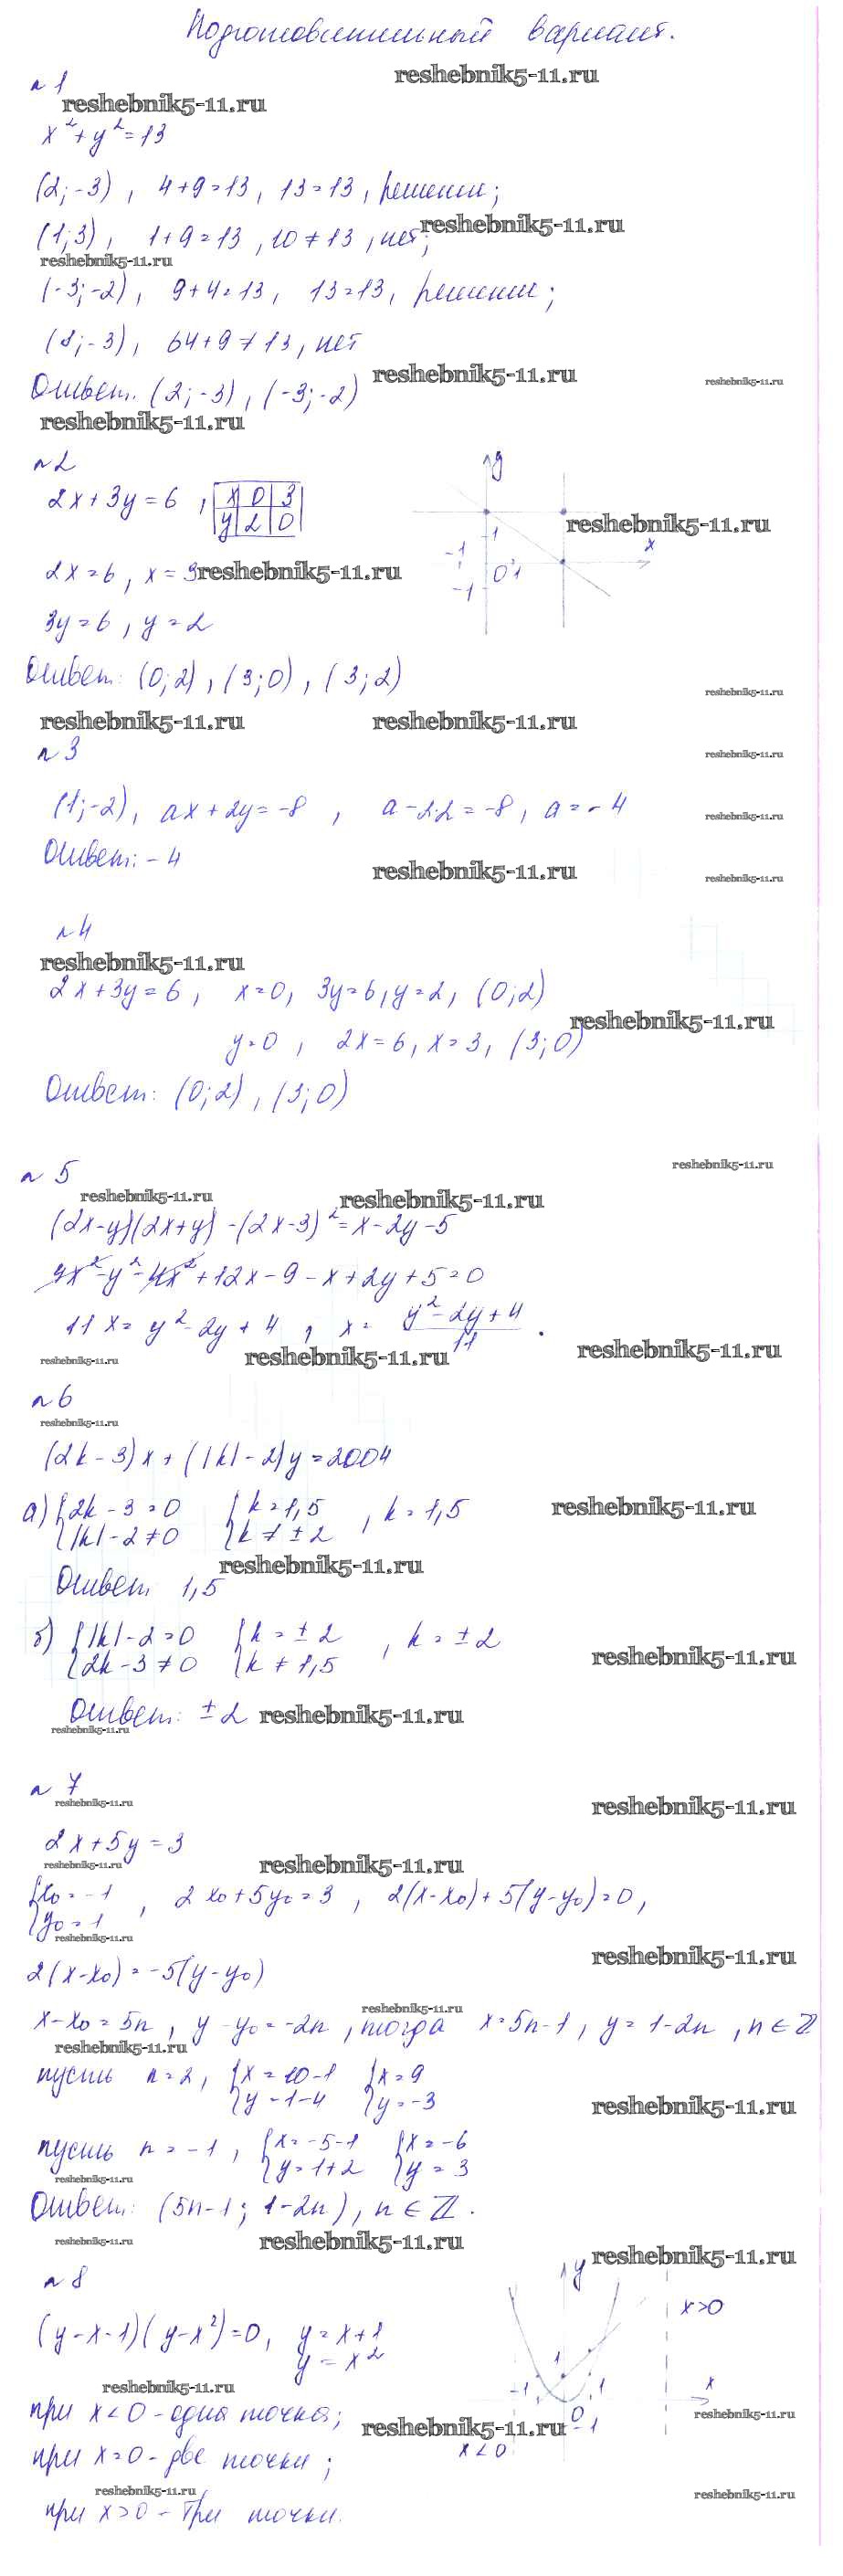 Подготовительный вариант.
reshebnik5-11.ru
n 1
reshebnik5-11.ru
x² + y² = 13
(2; -3), 4+9=13, 13=13, решение;
(1; 3), 1+9=13, 10≠13, нет; reshebnik5-11.ru
reshebnik5-11.ru
(-3; -2), 9+4=13, 13=13, решение;
(8; -3), 64+9≠13, нет
reshebnik5-11.ru reshebnik5-11.ru
Ответ. (2; -3), (-3; -2)
reshebnik5-11.ru
n 2
y
2x+3y=6, x 0 3
y 2 0
reshebnik5-11.ru
1
x
-1
0 1
-1
2x=6, x=3 reshebnik5-11.ru
3y=6, y=2
Ответ: (0; 2), (3; 0), (3; 2)
reshebnik5-11.ru
reshebnik5-11.ru reshebnik5-11.ru
n 3
reshebnik5-11.ru
(1; -2), ax+2y=-8, a-2·2=-8, a=-4
reshebnik5-11.ru
Ответ: -4
reshebnik5-11.ru reshebnik5-11.ru
n 4
reshebnik5-11.ru
2x+3y=6, x=0, 3y=6, y=2, (0; 2)
reshebnik5-11.ru
y=0, 2x=6, x=3, (3; 0)
Ответ: (0; 2), (3; 0)
n 5
reshebnik5-11.ru
reshebnik5-11.ru reshebnik5-11.ru
(2x-y)(2x+y)-(2x-3)²=x-2y-5
4x²-y²-4x²+12x-9-x+2y+5=0
11x=y²-2y+4, x= y²-2y+4
11 .
reshebnik5-11.ru reshebnik5-11.ru reshebnik5-11.ru
n 6
reshebnik5-11.ru
(2k-3)x+(|k|-2)y=2004
а) {2k-3=0 {k=1,5 , k=1,5 reshebnik5-11.ru
{|k|-2≠0 {k≠±2
reshebnik5-11.ru
Ответ 1,5
б) {|k|-2=0 {k=±2 , k=±2
{2k-3≠0 {k≠1,5
reshebnik5-11.ru
Ответ: ±2 reshebnik5-11.ru
reshebnik5-11.ru
n 7
reshebnik5-11.ru reshebnik5-11.ru
2x+5y=3
reshebnik5-11.ru reshebnik5-11.ru
{x₀=-1 , 2x₀+5y₀=3, 2(x-x₀)+5(y-y₀)=0,
{y₀=1
reshebnik5-11.ru
reshebnik5-11.ru
2(x-x₀)=-5(y-y₀)
reshebnik5-11.ru
x-x₀=5n, y-y₀=-2n, тогда x=5n-1, y=1-2n, n∈Z
reshebnik5-11.ru
пусть n=2, {x=10-1 {x=9
{y=1-4 {y=-3
reshebnik5-11.ru
пусть n=-1, {x=-5-1 {x=-6
{y=1+2 {y=3
reshebnik5-11.ru
Ответ: (5n-1; 1-2n), n∈Z.
reshebnik5-11.ru reshebnik5-11.ru
reshebnik5-11.ru
n 8
y
x>0
(y-x-1)(y-x²)=0, y=x+1
y=x²
1
-1 1 x
0
-1
reshebnik5-11.ru
при x<0 - одна точка;
reshebnik5-11.ru reshebnik5-11.ru
x<0
при x=0 - две точки;
reshebnik5-11.ru reshebnik5-11.ru
при x>0 - три точки.